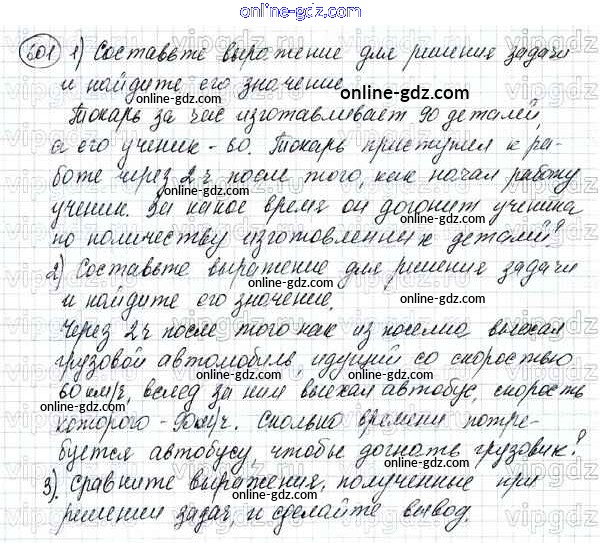 online-gdz.com
601 1) Составьте выражение для решения задачи
и найдите его значение.
Токарь за час изготавливает 90 деталей,
а его ученик - 60. Токарь приступил к ра-
боте через 2 ч после того, как начал работу
ученик. За какое время он догонит ученика
по количеству изготовленных деталей?
2) Составьте выражение для решения задачи
и найдите его значение.
Через 2 ч после того как из поселка выехал
грузовой автомобиль, идущий со скоростью
60 км/ч, вслед за ним выехал автобус, скорость
которого - 90 км/ч. Сколько времени потре-
буется автобусу, чтобы догнать грузовик?
3). Сравните выражения, полученные при
решении задач, и сделайте вывод.